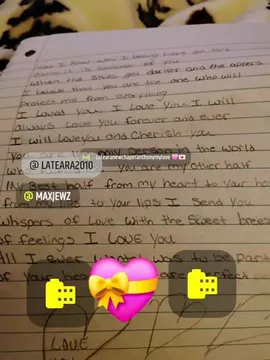 Now I know why I been here on this
Earth it is because of you
When the skies get darker and the
I believe that you are the one who will
Protect me from
I Loved You I Love You I will
always Love you forever and ever
I will Love you and Cherish you
in the world
@ LATEARA2010
latearanewchaperanthonymylove
You are my other half
My Best half from my heart to your
to your lips I send you
@ MAXJEWZ
whispers of Love with the sweet breeze
of feelings I LOVE you
All I ever was to be part
of your
LOVE